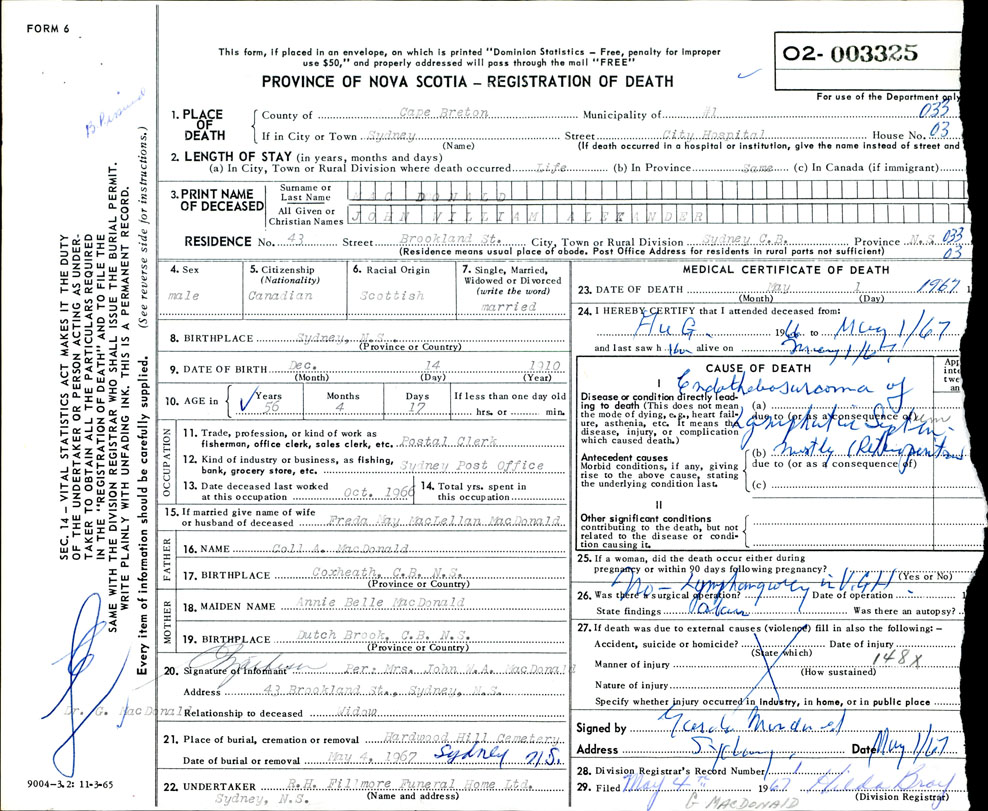 FORM 6
This form, if placed in an envelope, on which is printed "Dominion Statistics – Free, penalty for improper
use $50," and properly addressed will pass through the mail "FREE"
O2- 003325
PROVINCE OF NOVA SCOTIA – REGISTRATION OF DEATH
For use of the Department only
1. PLACE OF DEATH
County of Cape Breton Municipality of #1 033
If in City or Town Sydney Street City Hospital House No. 03
(Name) (If death occurred in a hospital or institution, give the name instead of street and
2. LENGTH OF STAY (in years, months and days)
(a) In City, Town or Rural Division where death occurred Life (b) In Province Same (c) In Canada (if immigrant)
3. PRINT NAME OF DECEASED
Surname or Last Name MAC DONALD
All Given or Christian Names JOHN WILLIAM ALEXANDER
RESIDENCE No. 43 Street Brookland St. City, Town or Rural Division Sydney C.B. Province N.S. 033
(Residence means usual place of abode. Post Office Address for residents in rural parts not sufficient) 03
4. Sex
male
5. Citizenship
(Nationality)
Canadian
6. Racial Origin
Scottish
7. Single, Married,
Widowed or Divorced
(write the word)
married
8. BIRTHPLACE Sydney, N.S.
(Province or Country)
9. DATE OF BIRTH Dec. 14 1910
(Month) (Day) (Year)
10. AGE in Years Months Days If less than one day old
56 4 17 hrs. or min.
OCCUPATION
11. Trade, profession, or kind of work as
fisherman, office clerk, sales clerk, etc. Postal Clerk
12. Kind of industry or business, as fishing,
bank, grocery store, etc. Sydney Post Office
13. Date deceased last worked
at this occupation Oct. 1966
14. Total yrs. spent in
this occupation
15. If married give name of wife
or husband of deceased Freda May MacLellan MacDonald
FATHER
16. NAME Coll A. MacDonald
17. BIRTHPLACE Coxheath, C.B. N.S.
(Province or Country)
MOTHER
18. MAIDEN NAME Annie Belle MacDonald
19. BIRTHPLACE Dutch Brook, C.B. N.S.
(Province or Country)
20. Signature of Informant Per: Mrs. John W.A. MacDonald
Address 43 Brookland St., Sydney, N.S.
Relationship to deceased Widow
21. Place of burial, cremation or removal Hardwood Hill Cemetery
Date of burial or removal May 4, 1967 Sydney N.S.
22. UNDERTAKER R.H. Fillmore Funeral Home Ltd.
Sydney, N.S. (Name and address)
MEDICAL CERTIFICATE OF DEATH
23. DATE OF DEATH May 1 1967
(Month) (Day)
24. I HEREBY CERTIFY that I attended deceased from:
Aug. 1966 to May 1/67
and last saw him alive on May 1/67
CAUSE OF DEATH
I
Disease or condition directly lead-
ing to death (This does not mean
the mode of dying, e.g., heart fail-
ure, asthenia, etc. It means the
disease, injury, or complication
which caused death.)
(a)
due to (or as a consequence of)
Antecedent causes
Morbid conditions, if any, giving
rise to the above cause, stating
the underlying condition last.
(b) mostly
due to (or as a consequence of)
(c)
II
Other significant conditions
contributing to the death, but not
related to the disease or condi-
tion causing it.
25. If a woman, did the death occur either during
pregnancy or within 90 days following pregnancy? (Yes or No)
26. Was there a surgical operation? No – in V.G.H. Date of operation
State findings Was there an autopsy?
27. If death was due to external causes (violence) fill in also the following: –
Accident, suicide or homicide? Date of injury
(State which) 148X
Manner of injury
(How sustained)
Nature of injury
Specify whether injury occurred in industry, in home, or in public place
Signed by
Address Sydney Date May 1/67
28. Division Registrar's Record Number
29. Filed May 4th 1967 Hilda
(Division Registrar)
G MACDONALD
SEC. 14 – VITAL STATISTICS ACT MAKES IT THE DUTY
OF THE UNDERTAKER OR PERSON ACTING AS UNDER-
TAKER TO OBTAIN ALL THE PARTICULARS REQUIRED
IN THE "REGISTRATION OF DEATH" AND TO FILE THE
SAME WITH THE DIVISION REGISTRAR WHO SHALL ISSUE THE BURIAL PERMIT.
WRITE PLAINLY WITH UNFADING INK. THIS IS A PERMANENT RECORD.
Every item of information should be carefully supplied. (See reverse side for instructions.)
Dr. G. MacDonald
9004-3.2: 11-3-65